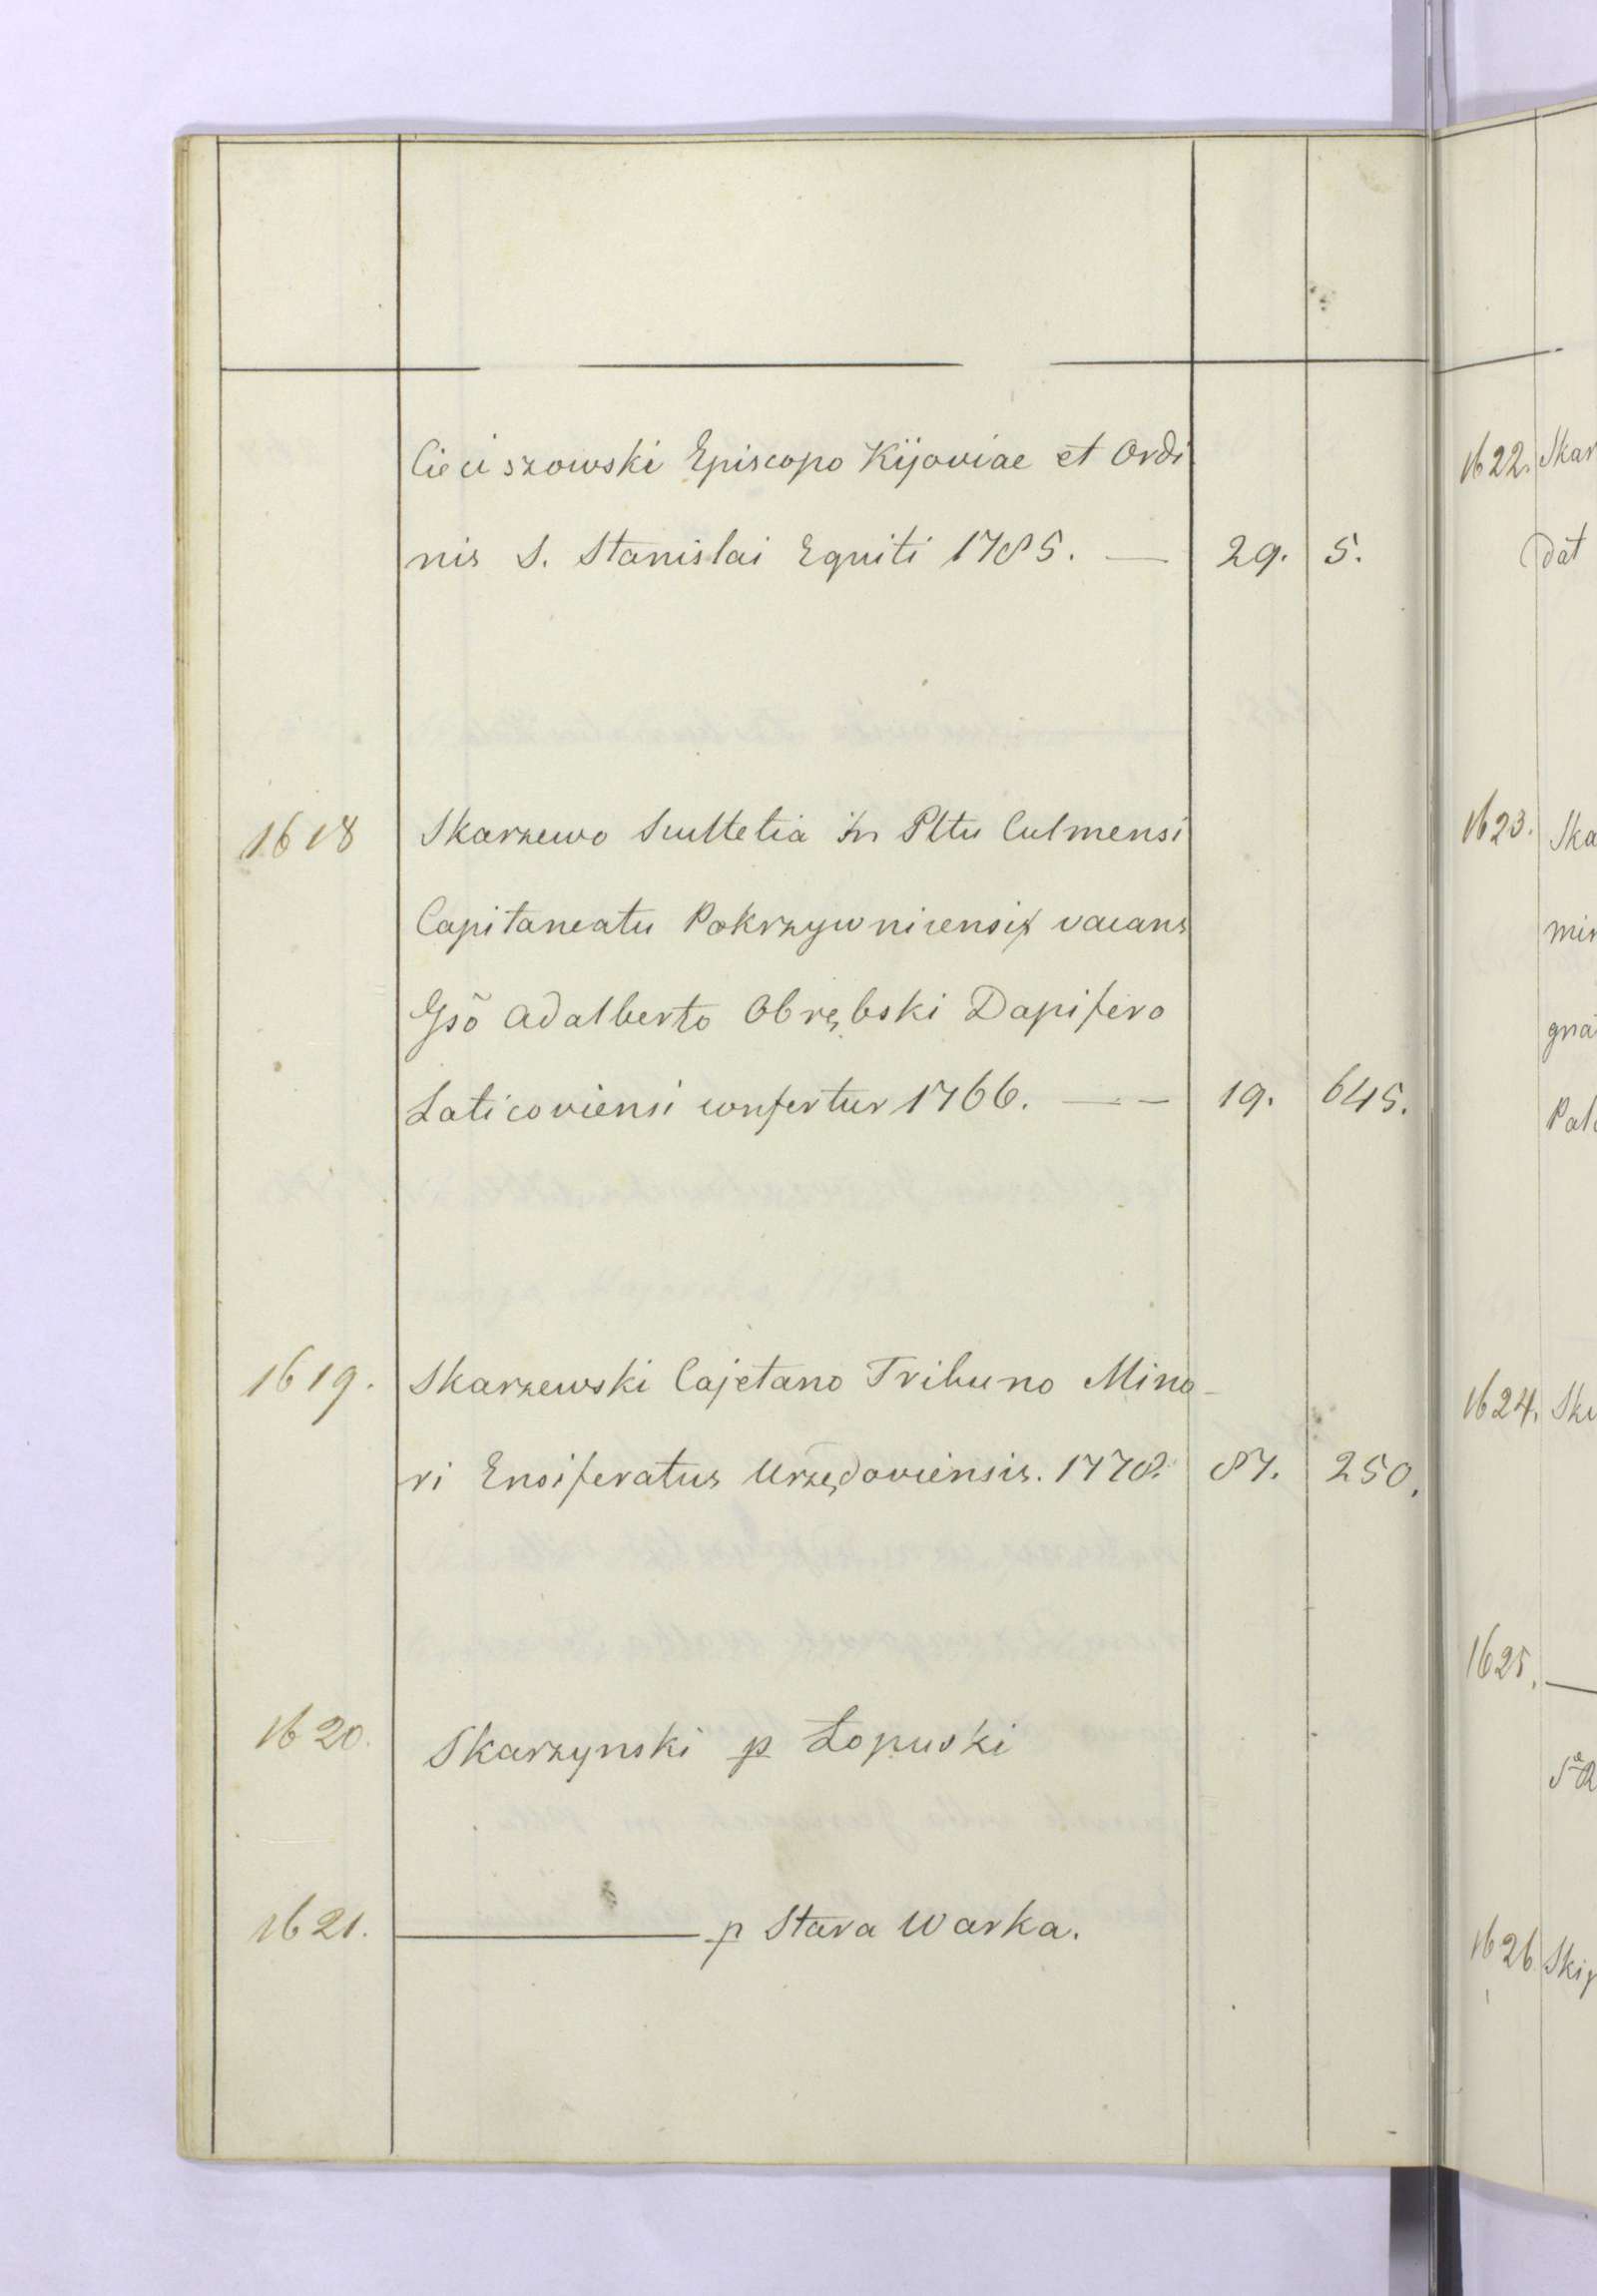 Cieciszowski Episcopo Kijoviae et Ordi
nis S. Stanislai Equiti 1785. — 29. 5.
1618 Skarzewo Scultetia in Pltu Culmensi
Capitaneatu Pokrzywnicensi vacans
Gsõ Adalberto Obrębski Dapifero
Laticoviensi confertur 1766. — — 19. 645.
1619. Skarzewski Cajetano Tribuno Mino-
ri Ensiferatus Urzędoviensis. 1778. 87. 250.
1620. Skarzynski p Łopuski
1621. ——— p Stara Warka.
1622. Skar
dat
1623. Ska
min
gna
Pal
1624. Ska
1625. —
1626 Skip